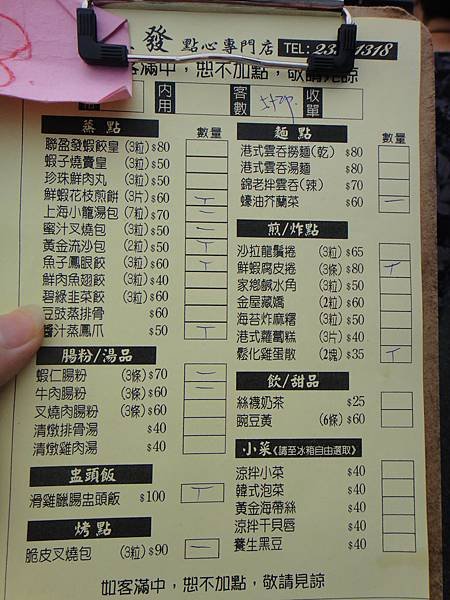 發 點心專門店 TEL: 23 1318
如客滿中，恕不加點，敬請見諒
內用 客數 收單
蒸點 數量
聯盈發蝦餃皇 (3粒) $80
蝦子燒賣皇 (3粒) $50
珍珠鮮肉丸 (3粒) $50
鮮蝦花枝煎餅 (3片) $60 一
上海小籠湯包 (7粒) $70 一
蜜汁叉燒包 (3粒) $50 二
黃金流沙包 (2粒) $50 T
魚子鳳眼餃 (3粒) $60 T
鮮肉魚翅餃 (3粒) $40
碧綠韭菜餃 (3粒) $60
豆豉蒸排骨 $60
醬汁蒸鳳爪 $50 T
腸粉/湯品
蝦仁腸粉 (3條) $70 二
牛肉腸粉 (3條) $60 一
叉燒內腸粉 (3條) $60
清燉排骨湯 $40
清燉雞肉湯 $40
盅頭飯
滑雞臘腸盅頭飯 $100 T
烤點
脆皮叉燒包 (3粒) $90 二
麵點 數量
港式雲吞撈麵(乾) $80
港式雲吞湯麵 $80
錦老拌雲吞(辣) $70
蠔油芥蘭菜 $60 一
煎/炸點
沙拉龍鬚捲 (3粒) $65
鮮蝦腐皮捲 (3條) $80 T
家鄉鹹水角 (3粒) $50
金屋藏嬌 (2粒) $60
海苔炸麻糬 (3粒) $50
港式蘿蔔糕 (3片) $40
鬆化雞蛋散 (2塊) $35 T
飲/甜品
絲襪奶茶 $25
豌豆黃 (6條) $60
小菜《請至冰箱自由選取》
涼拌小菜 $40
韓式泡菜 $40
黃金海帶絲 $40
涼拌干貝唇 $40
養生黑豆 $40
如客滿中，恕不加點，敬請見諒